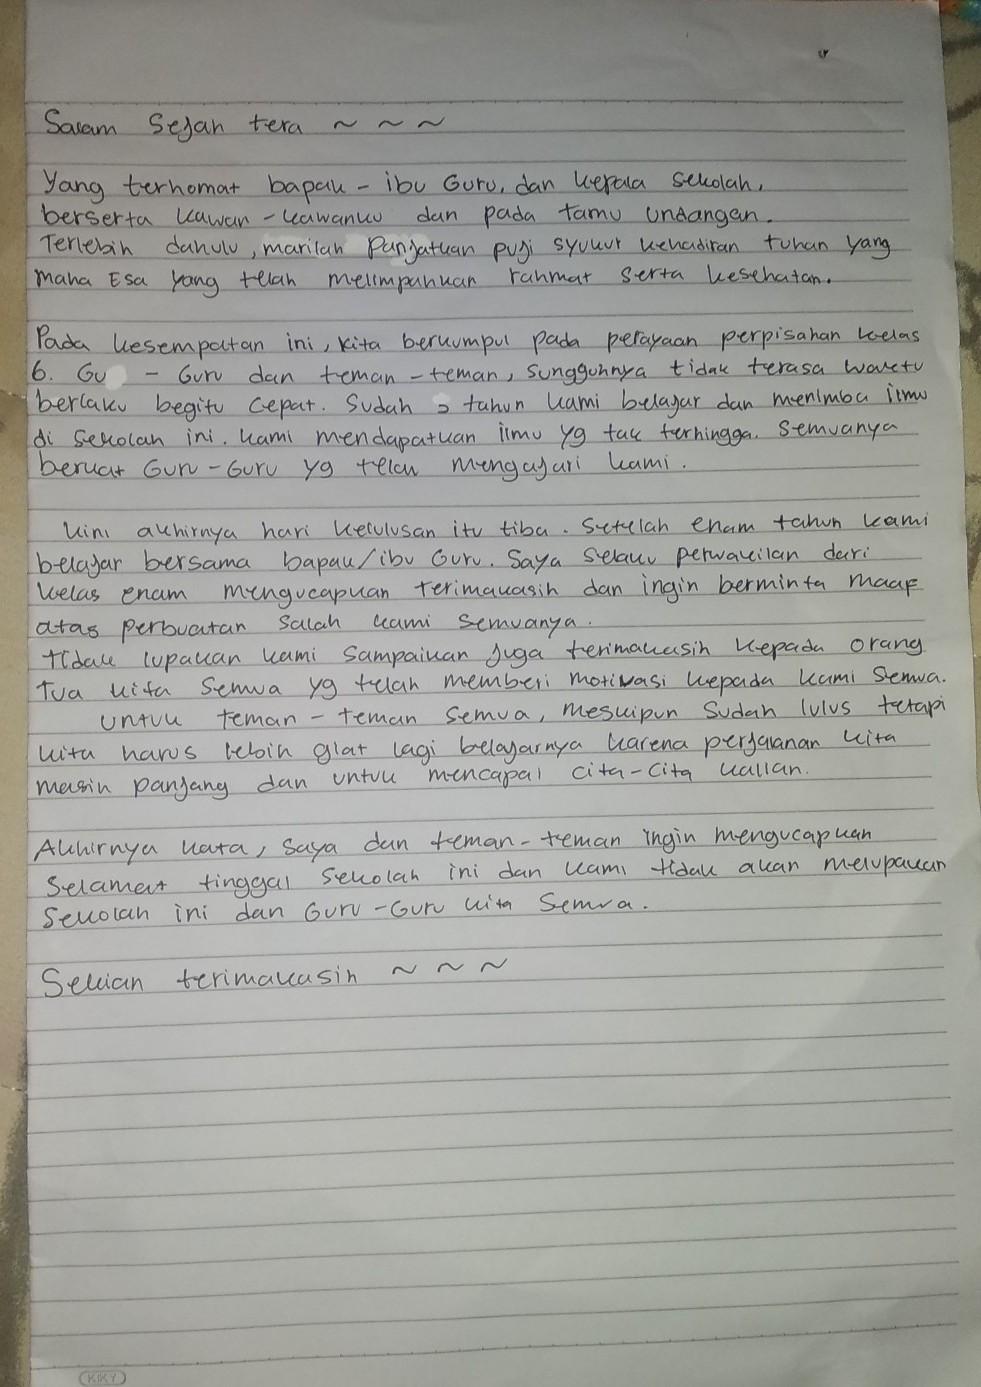 Salam Sejah tera ~ ~ ~
Yang terhomat bapak - ibu Guru, dan kepala sekolah,
berserta kawan - kawanku dan pada tamu undangan.
Terlebih dahulu, marilah Panjatkan puji syukur kehadiran tuhan yang
maha Esa yang telah melimpahkan rahmat serta kesehatan.
Pada kesempatan ini, kita berkumpul pada perayaan perpisahan kelas
6. Gu - Guru dan teman - teman, sungguhnya tidak terasa waktu
berlaku begitu cepat. Sudah tahun kami belajar dan menimba ilmu
di sekolah ini. kami mendapatkan ilmu yg tak terhingga. semuanya
berkat Guru - Guru yg telah mengajari kami.
Kini akhirnya hari kelulusan itu tiba. Setelah enam tahun kami
belajar bersama bapak/ibu Guru. Saya selaku perwakilan dari
kelas enam mengucapkan terimakasih dan ingin berminta maaf
atas perbuatan salah kami semuanya.
tidak lupakan kami sampaikan juga terimakasih kepada orang
tua kita semua yg telah memberi motivasi kepada kami semua.
untuk teman - teman semua, meskipun sudah lulus tetapi
kita harus lebih giat lagi belajarnya karena perjalanan kita
masih panjang dan untuk mencapai cita-cita kalian.
Akhirnya kata, saya dan teman-teman ingin mengucapkan
selamat tinggal sekolah ini dan kami tidak akan melupakan
sekolah ini dan Guru - Guru kita semua.
Sekian terimakasih ~ ~ ~
KIKY